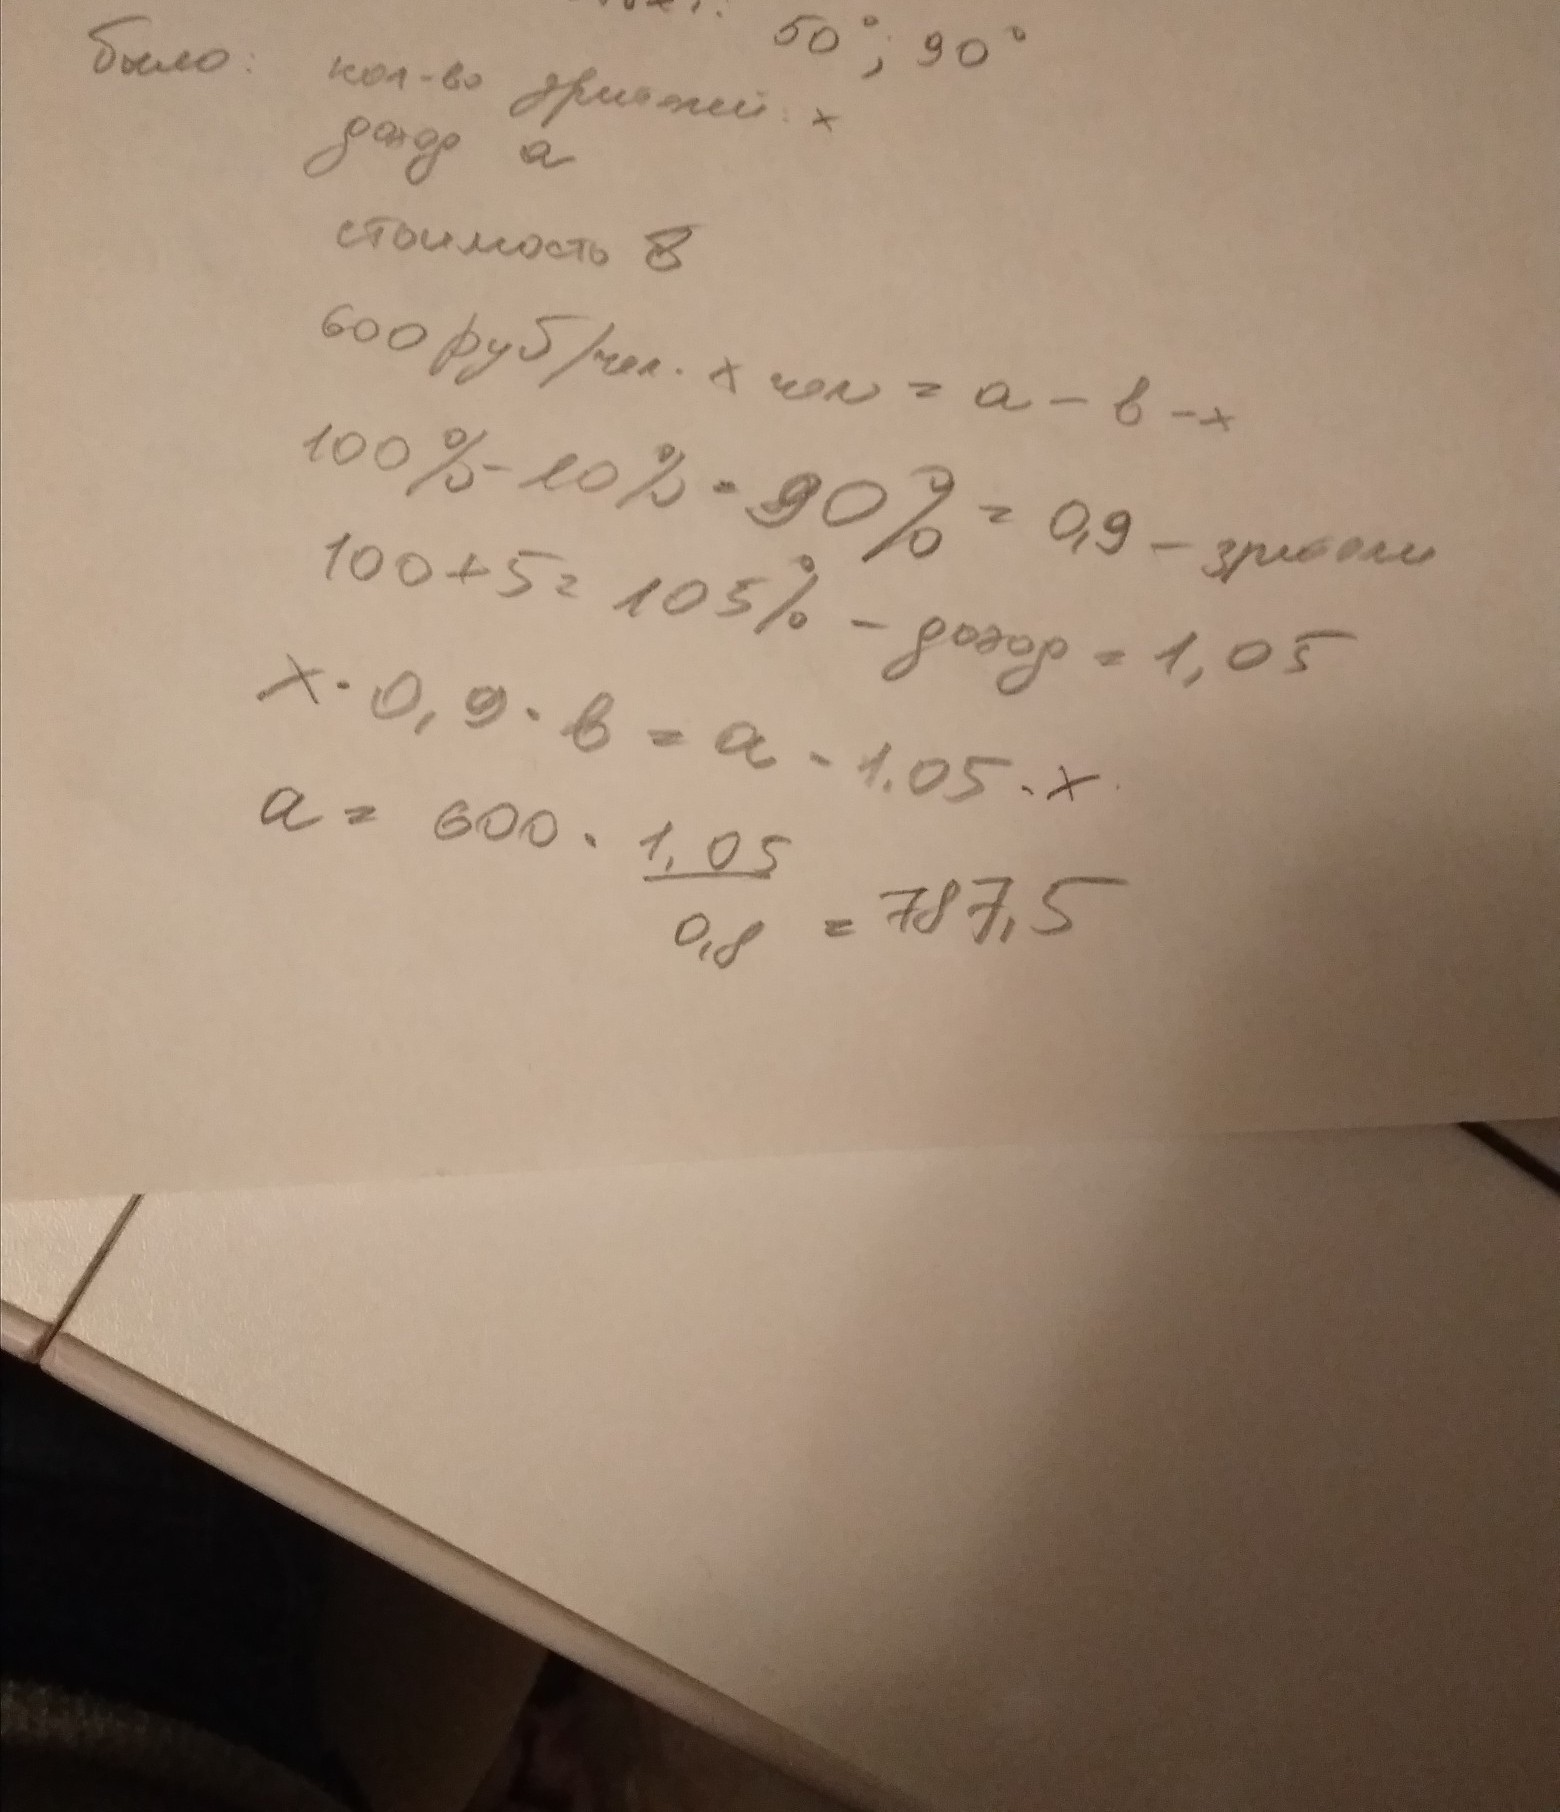 50°; 90°
было: кол-во зрителей: x
доход a
стоимость в
600 руб/чел. x чел = a - в - x
100% - 10% = 90% = 0,9 - зрители
100+5= 105% - доход = 1,05
x · 0,9 · в = a · 1.05 · x
a = 600 · 1,05 / 0,8 = 787,5